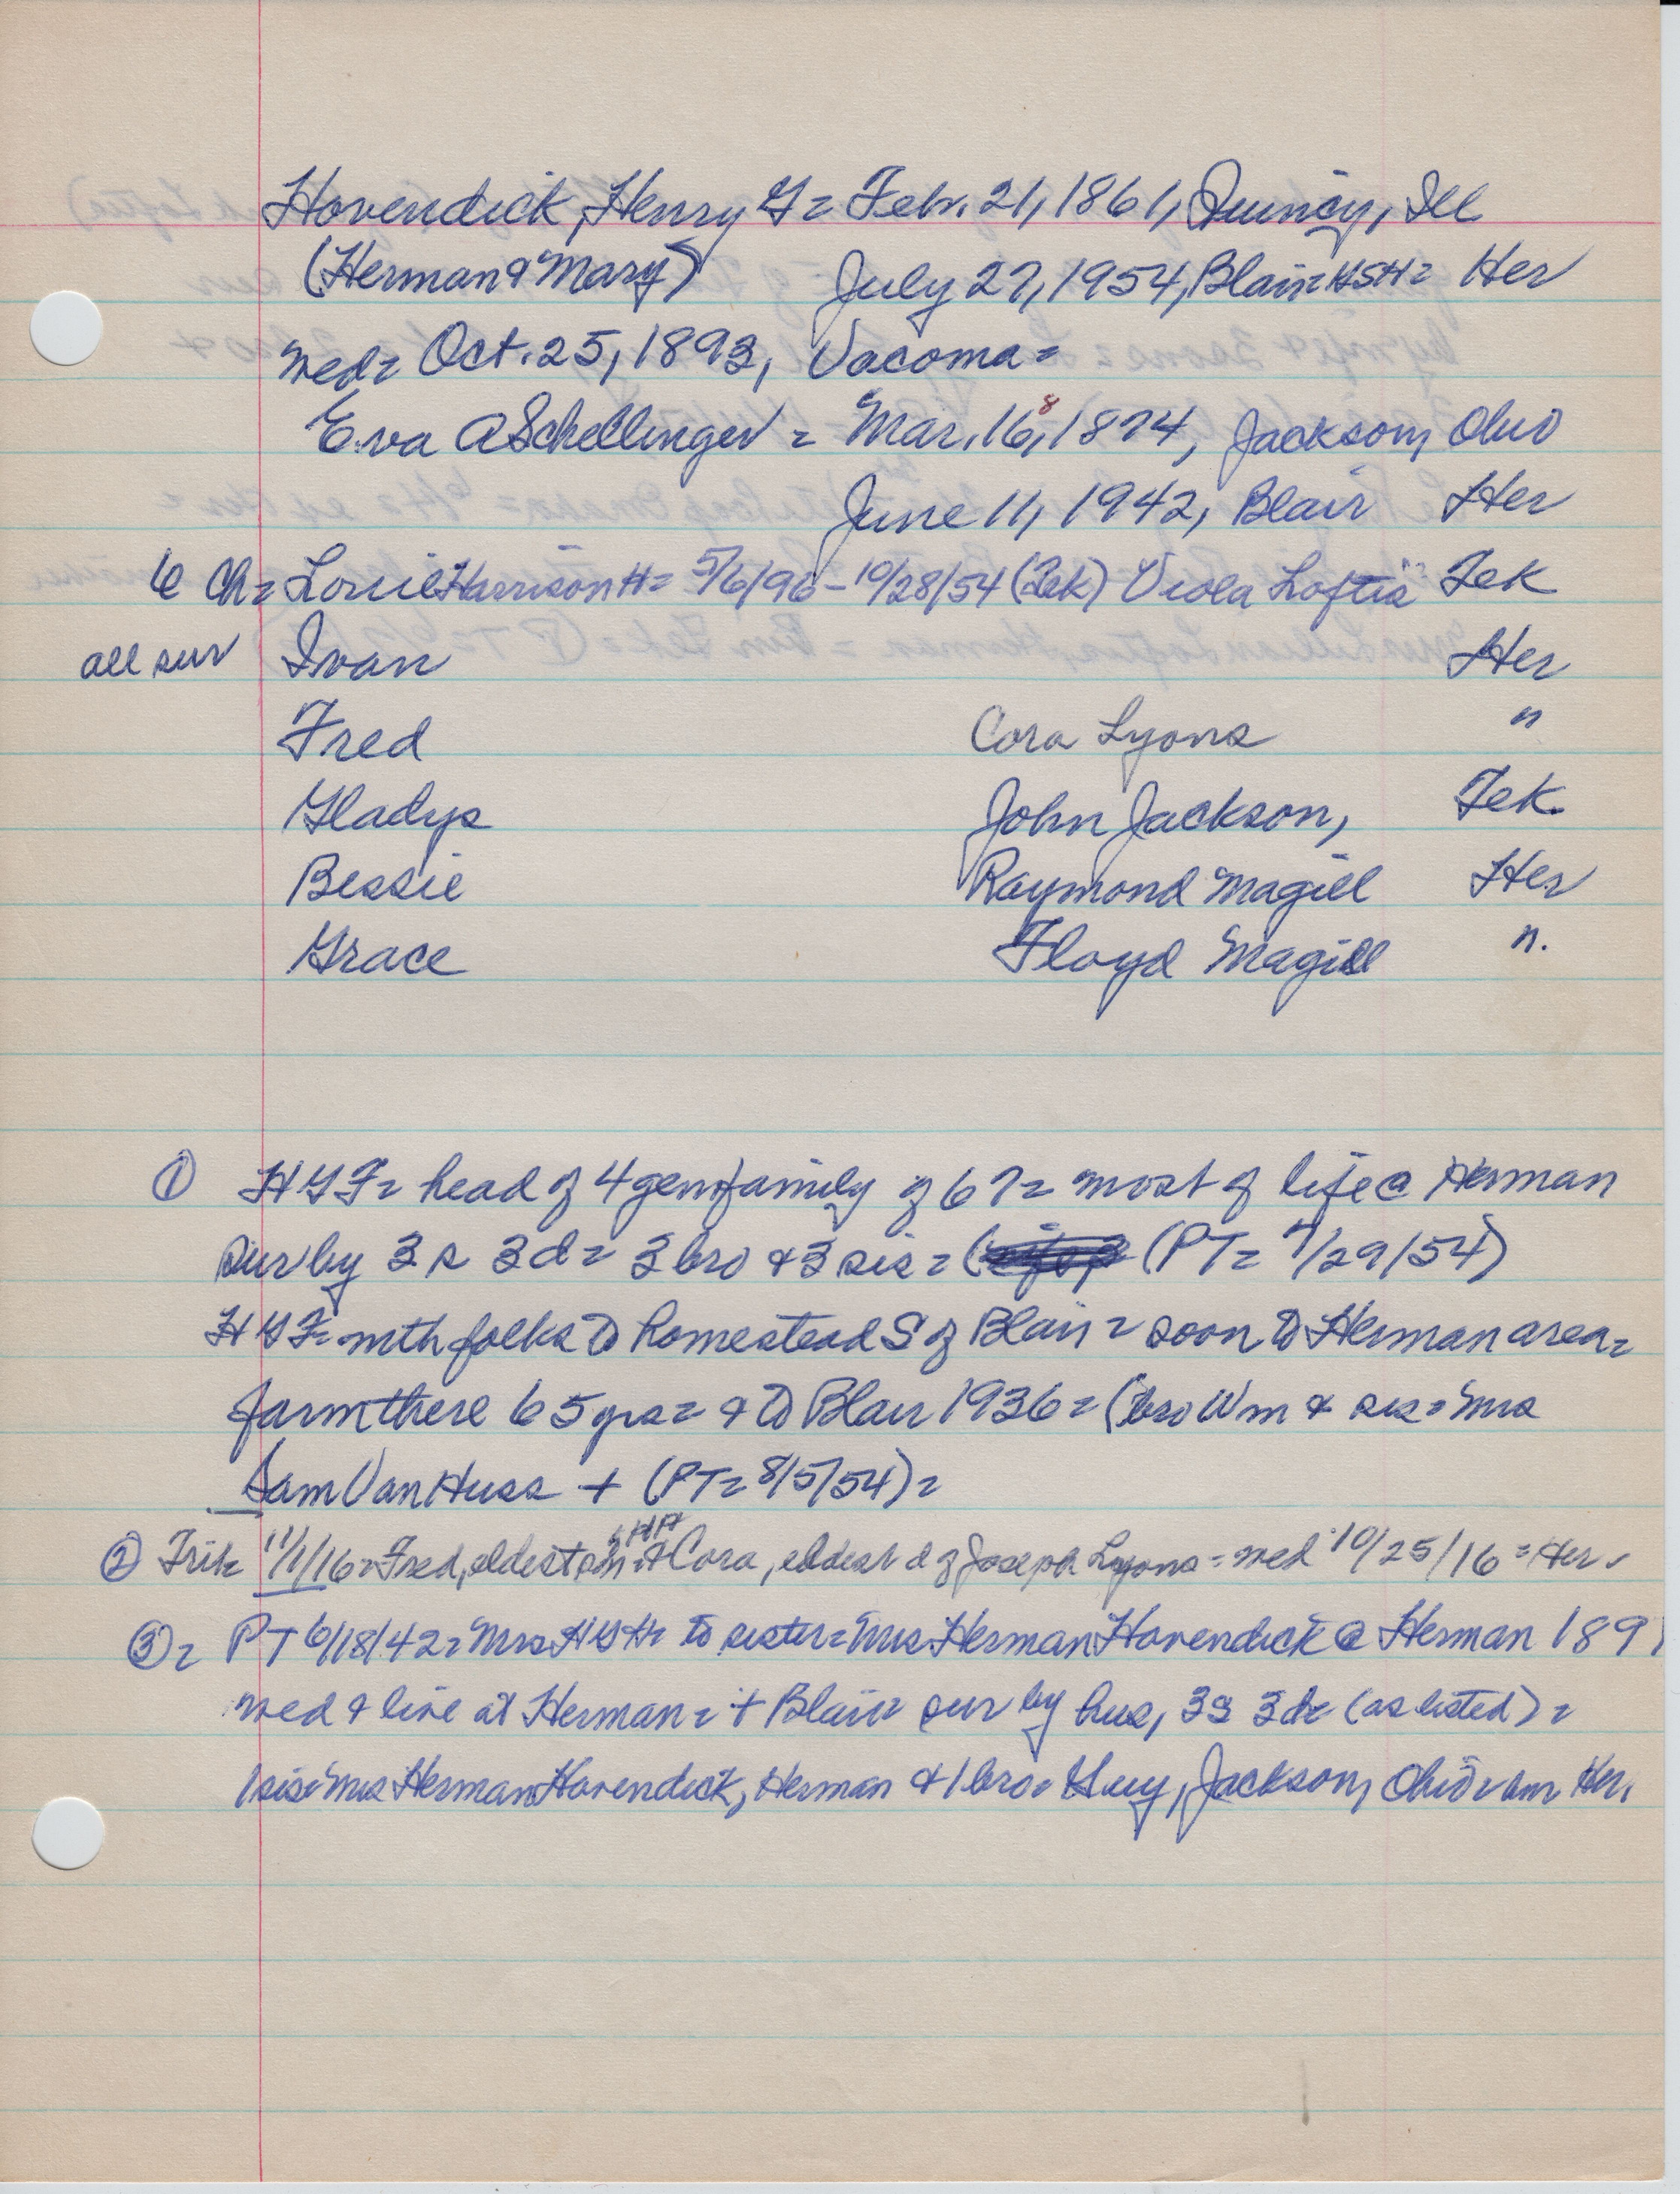 Hovendick, Henry G = Feb. 21, 1861, Quincy, Ill
(Herman & Mary) July 27, 1954, Blair = HSH = Her
wed = Oct. 25, 1893, Vacoma =
8
Eva A Schellinger = Mar. 16, 1874, Jackson, Ohio
June 11, 1942, Blair Her
6 Ch = Louie Harrison H = 5/6/96 - 10/28/54 (Tek) Viola Loftis Tek
all sur Ivan Her
Fred Cora Lyons "
Gladys John Jackson, Tek.
Bessie Raymond Magill Her
Grace Floyd Magill ".
① = head of 4 gen family of 67 = most of life @ Herman
sur by 3 s 3 d = 3 bro & 3 sis = (PT = 7/29/54)
folks to homestead S of Blair = soon to Herman area =
farm there 65 yrs = & to Blair 1936 = (bro Wm & sis = Mrs
Sam Van Huss + (PT = 8/5/54) =
② Trib 11/1/16 = Fred, eldest son & Cora, eldest d of Joseph Lyons = wed 10/25/16 = Her
③ = PT 6/18/42 = Mrs HGH = to sister = Mrs Herman Hovendick @ Herman 189
wed & live at Herman = + Blair = sur by hus, 3 s 3 d = (as listed) =
1 sis = Mrs Herman Hovendick, Herman & 1 bro = Guy, Jackson, Ohio = bur Her.